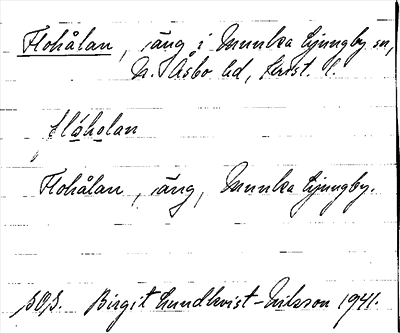 Flohålan, äng i Munka Ljungby sn,
N. Åsbo hd, Krist. l.
floholan
Flohålan, äng, Munka Ljungby.
Birgit Lundkvist-Nilsson 1941.